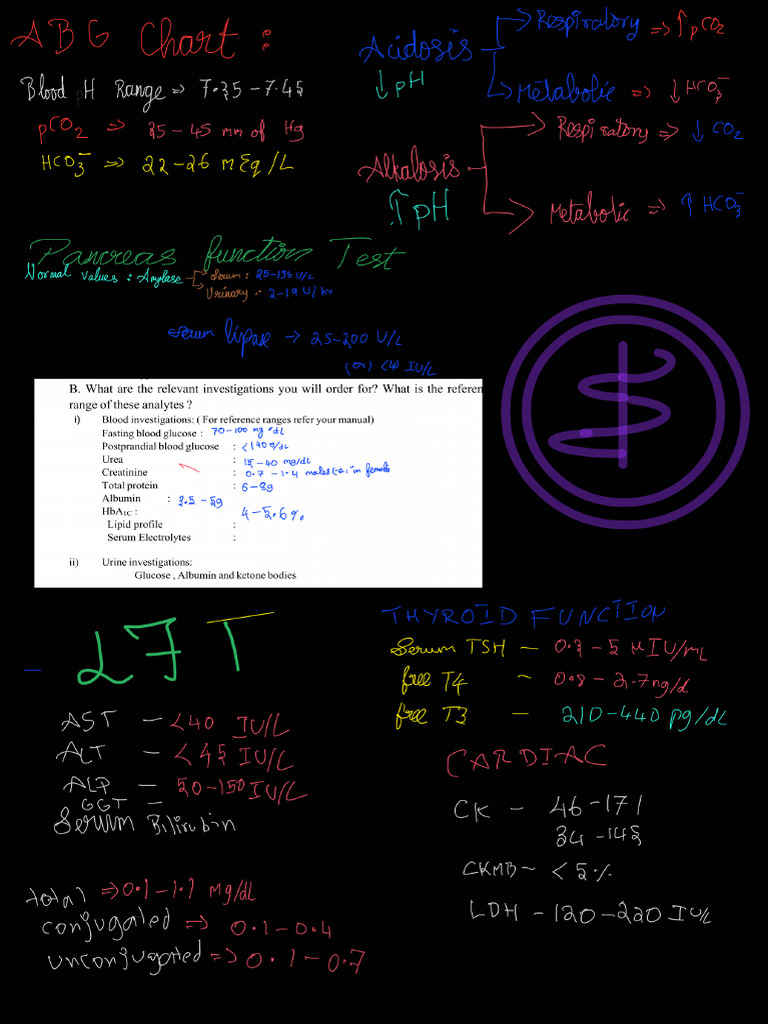 ABG Chart :
Blood pH Range => 7.35 - 7.45
pCO2 => 35 - 45 mm of Hg
HCO3⁻ => 22 - 26 mEq/L
Acidosis
↓ pH
Respiratory => ↑ pCO2
Metabolic => ↓ HCO3⁻
Alkalosis
↑ pH
Respiratory => ↓ CO2
Metabolic => ↑ HCO3⁻
Pancreas function Test
Normal values : Amylase → Serum : 25-135 U/L
→ Urinary : 2-19 U/hr
Serum lipase → 25-200 U/L
(or) <40 IU/L
B. What are the relevant investigations you will order for? What is the referen
range of these analytes ?
i) Blood investigations: ( For reference ranges refer your manual)
Fasting blood glucose : 70-100 mg dL
Postprandial blood glucose : <140 g/dL
Urea : 15-40 mg/dL
Creatinine : 0.7 - 1.4 males in female
Total protein : 6-8g
Albumin : 3.5 - 5g
HbA1C : 4-5.6%
Lipid profile :
Serum Electrolytes :
ii) Urine investigations:
Glucose , Albumin and ketone bodies
LFT
AST - <40 IU/L
ALT - <45 IU/L
ALP - 50-150 IU/L
GGT =
Serum Bilirubin
total => 0.1-1.1 mg/dL
conjugated => 0.1-0.4
unconjugated => 0.1-0.7
THYROID FUNCTION
Serum TSH - 0.3-5 μIU/mL
free T4 - 0.8-2.7 ng/d
free T3 - 210-440 pg/dL
CARDIAC
CK - 46-171
34-145
CKMB - <5%
LDH - 120-220 IU/L